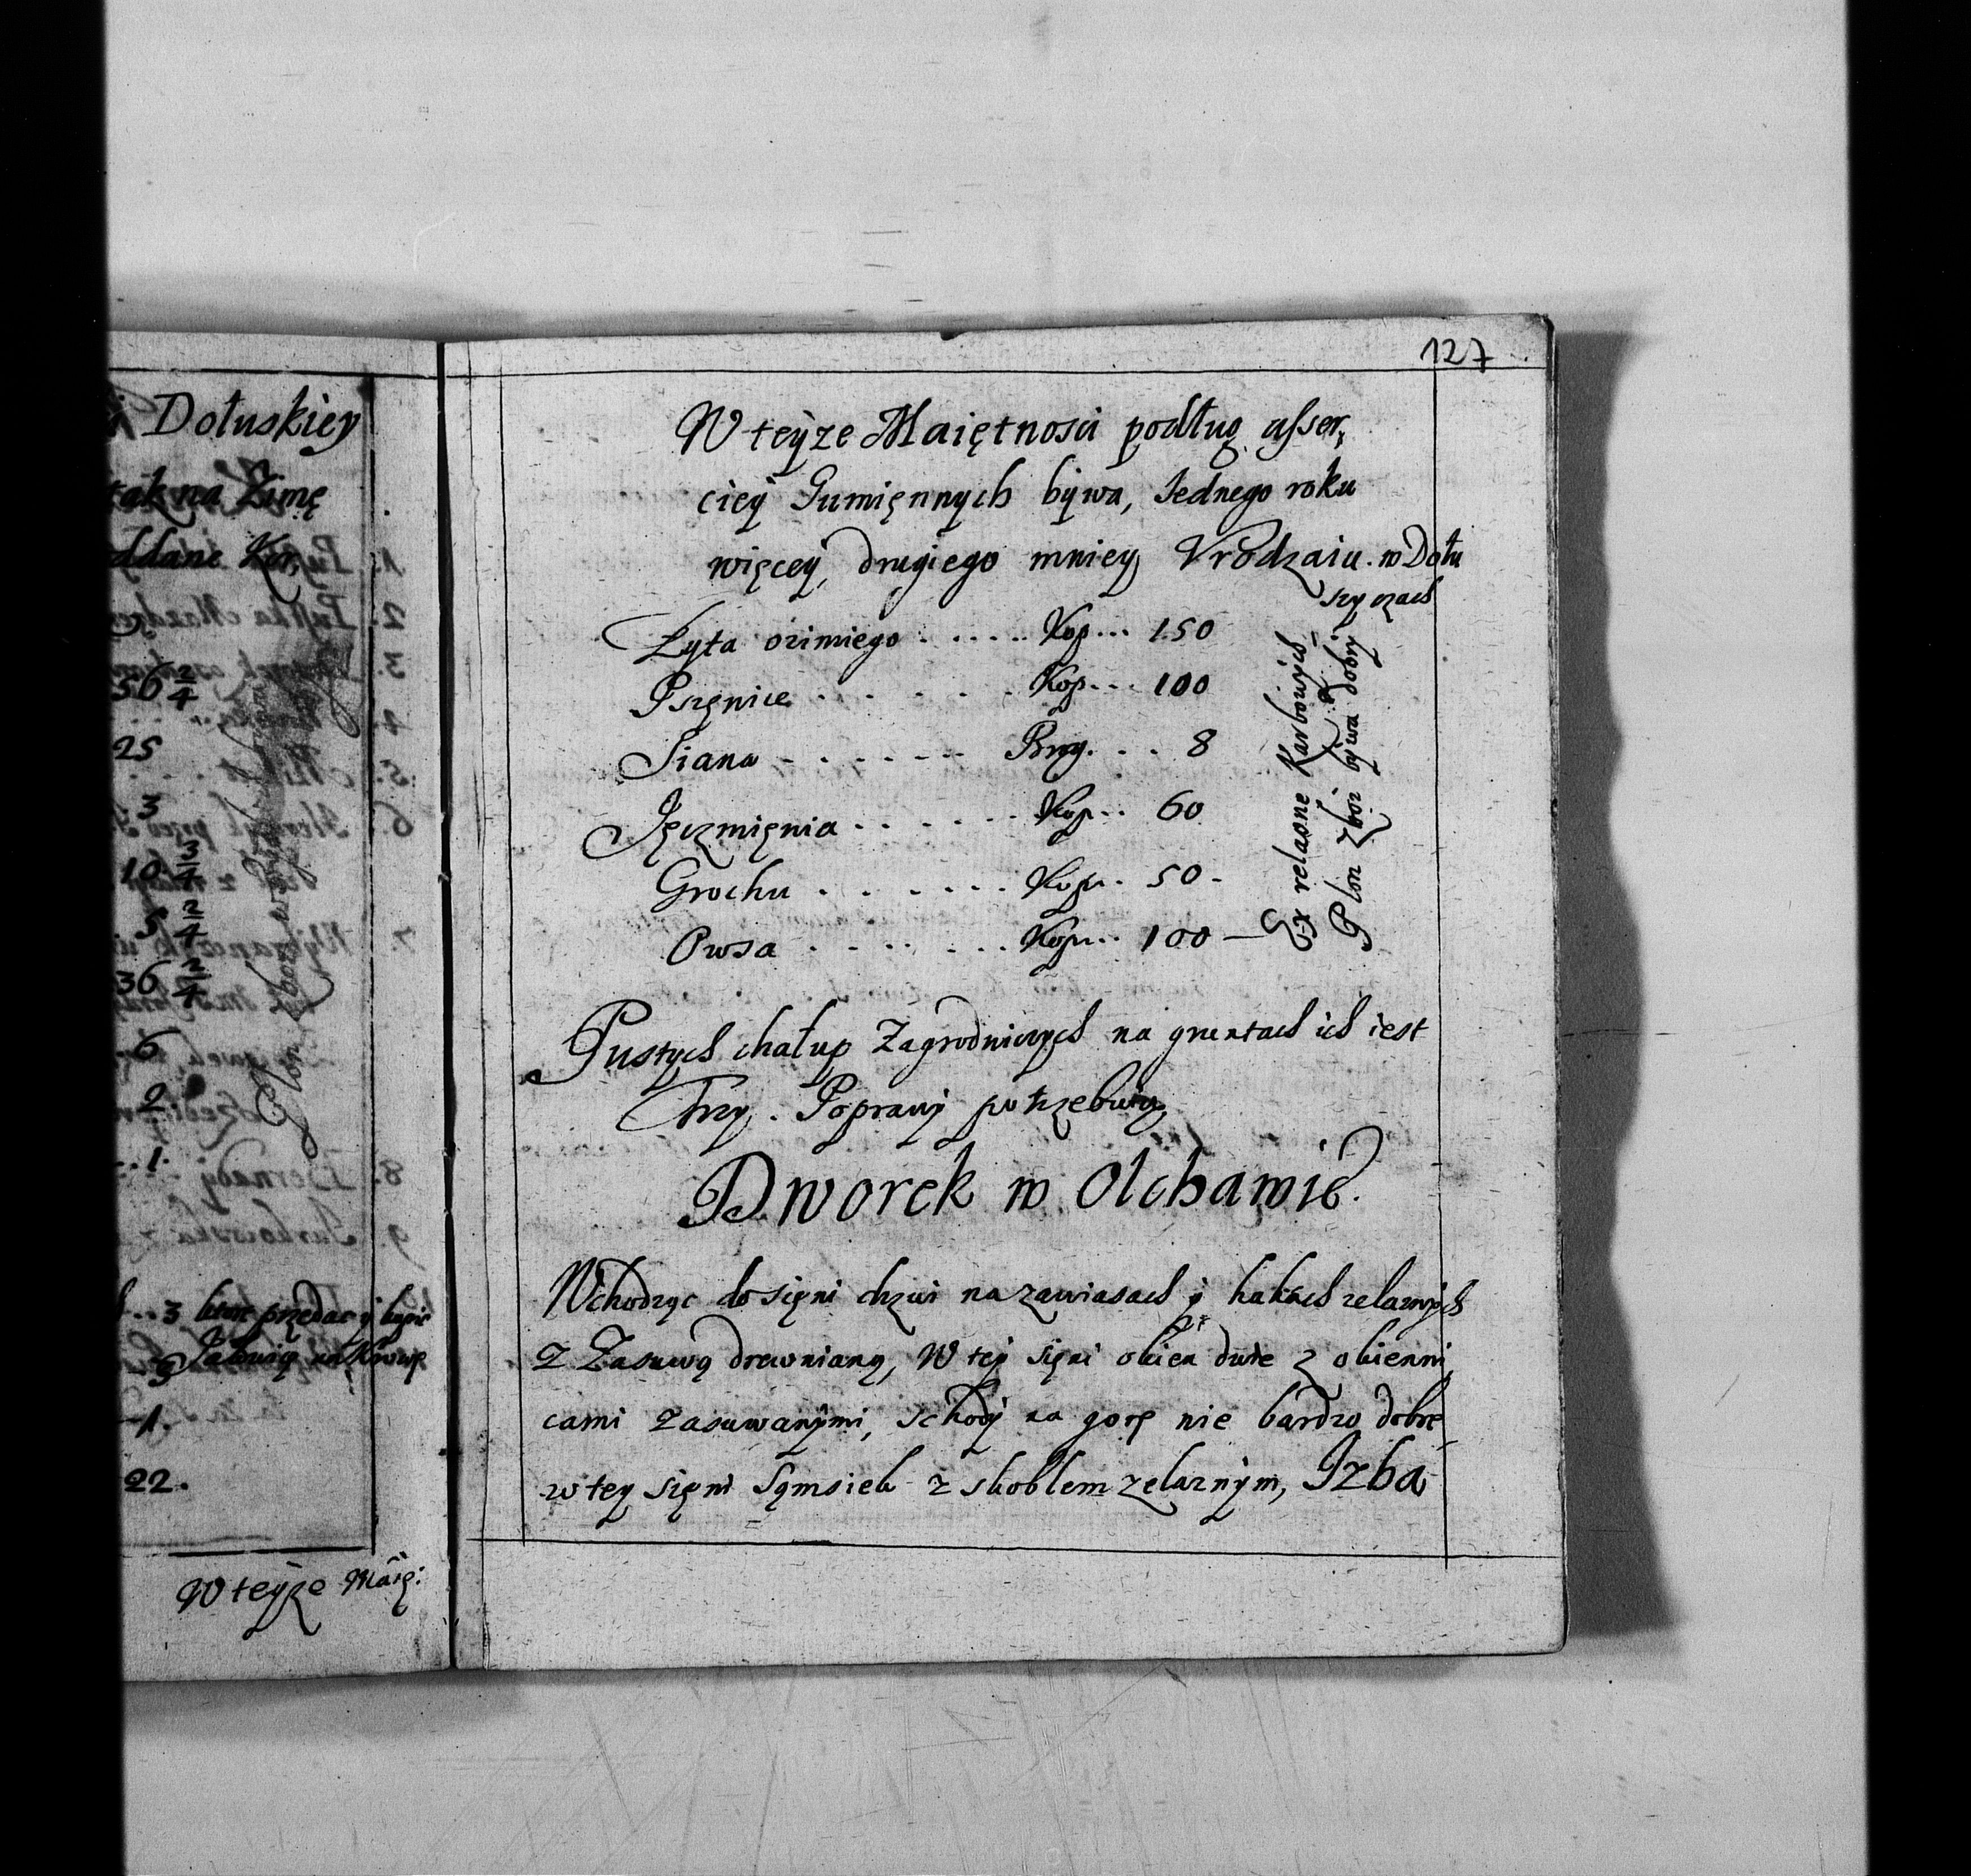 i Dołuskiey
tak na Zimę
oddane Kor:
56 2/4
25
3
10 3/4
5 2/4
36 2/4
6
2
1.
3
9
1.
22.
W teyze Maię:
127
W teyze Maiętnosci podług asser,
ciey Gumięnnych bywa, Jednego roku
więcey, drugiego mniey Vrodzaiu. w Dołu
szyczach
Zyta ozimiego . . . . . Kop... 150
Pszęnice . . . . . . Kop... 100
Siana - . . . . . - Brog. . . 8
Jęczmięnia . . . . . . Kop.. 60
Grochu . . . . . . . Kop. . 50 -
Owsa . . . . . . . Kop... 100 —
Ex relacione Karbowych
Plon Zboz bywa dobry
Pustych chałup Zagrodniczych na gruntach ich iest
Trzy. Poprawy potrzebuią
Dworek w Olchawie.
Wchodząc do sięni drzwi na zawiasach y hakach zelaznych
z Zasuwą drewnianą, W tey sięni okien dwie z okienni,
cami zasuwanymi, schody na gorę nie bardzo dobre
w tey sięni Sąmsiek z skoblem zelaznym, Izba